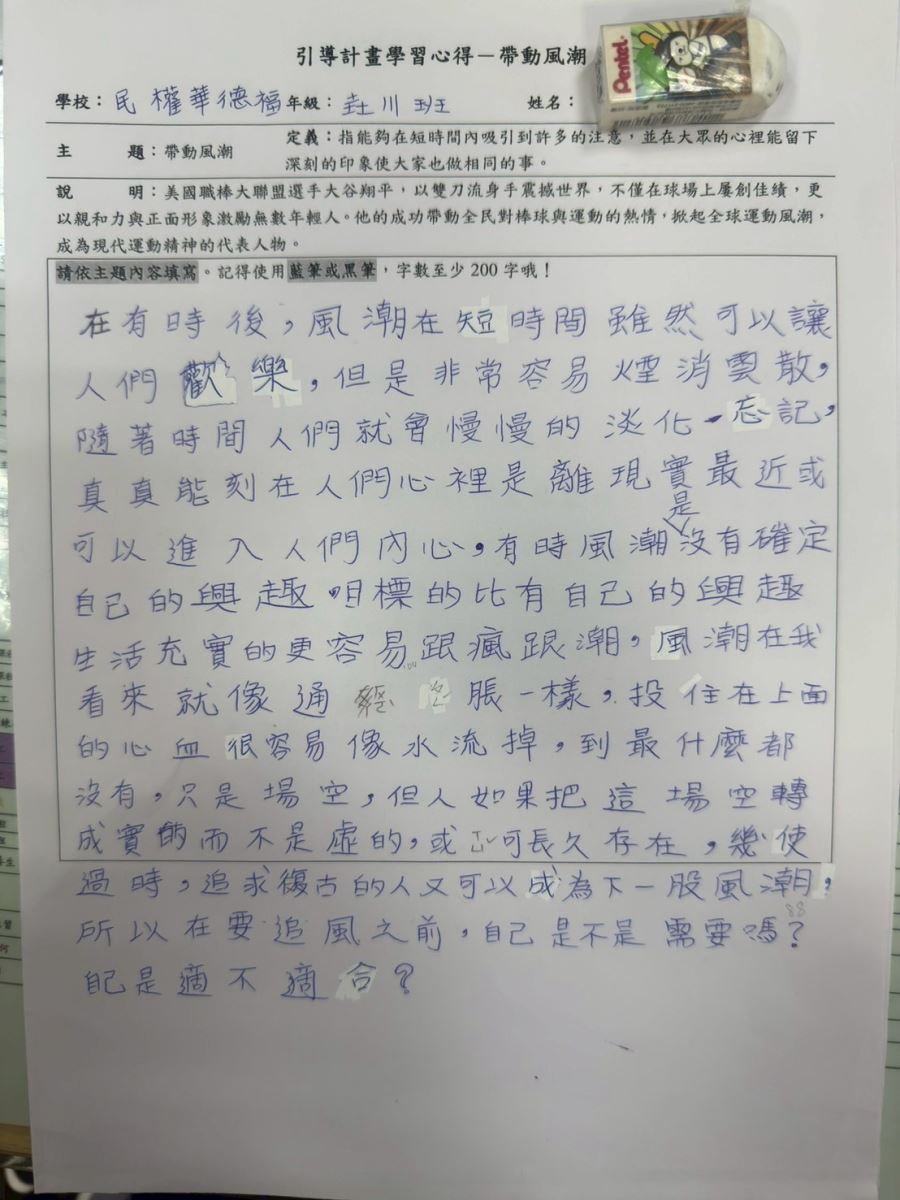 引導計畫學習心得－帶動風潮
Pentel
學校：民權華德福 年級：班 姓名：
主 題：帶動風潮 定義：指能夠在短時間內吸引到許多的注意，並在大眾的心裡能留下
深刻的印象使大家也做相同的事。
說 明：美國職棒大聯盟選手大谷翔平，以雙刀流身手震撼世界，不僅在球場上屢創佳績，更
以親和力與正面形象激勵無數年輕人。他的成功帶動全民對棒球與運動的熱情，掀起全球運動風潮，
成為現代運動精神的代表人物。
請依主題內容填寫。記得使用藍筆或黑筆，字數至少 200 字哦！
在有時後，風潮在短時間雖然可以讓
人們歡樂，但是非常容易煙消雲散，
隨著時間人們就會慢慢的淡化、忘記，
真真能刻在人們心裡是離現實最近或
可以進入人們內心，有時風潮是沒有確定
自己的興趣、目標的比有自己的興趣
生活充實的更容易跟瘋跟潮，風潮在我
看來就像通膨脹一樣，投住在上面
的心血很容易像水流掉，到最什麼都
沒有，只是場空，但人如果把這場空轉
成實的而不是虛的，或可長久存在，幾使
過時，追求復古的人又可以成為下一股風潮，
所以在要追風之前，自己是不是需要嗎？
自己是適不適合？